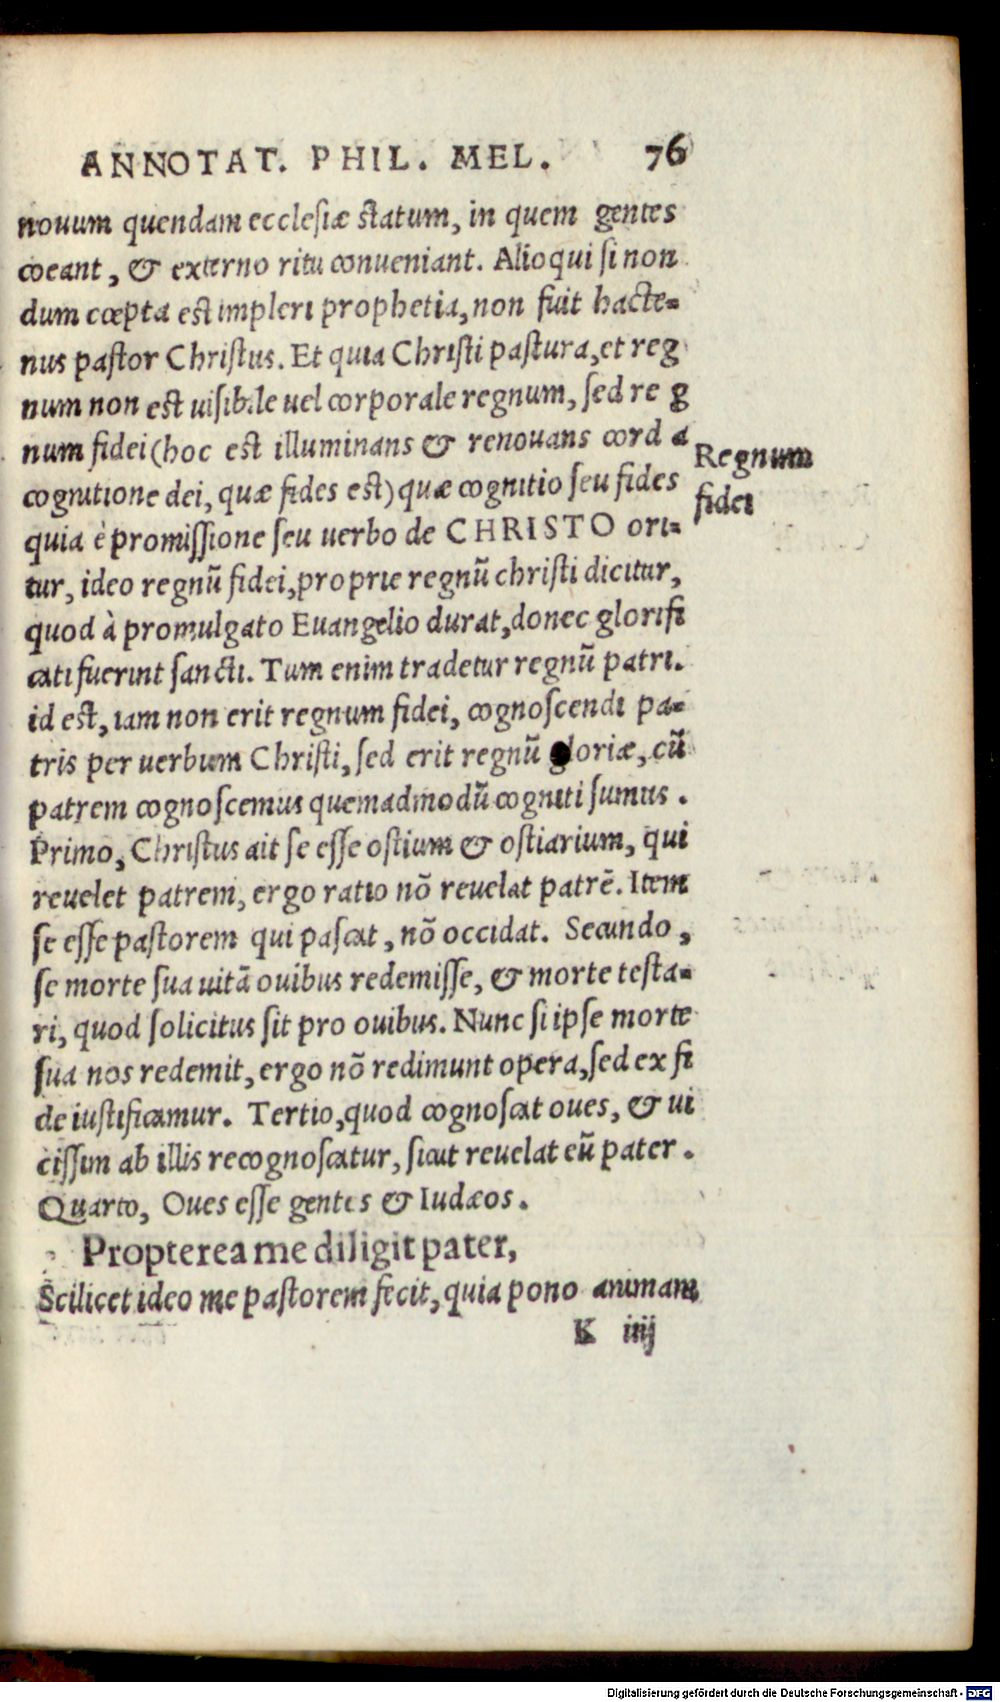 ANNOTAT. PHIL. MEL. 76
nouum quendam ecclesiæ statum, in quem gentes
coeant, & externo ritu conueniant. Alioqui si non
dum cœpta est impleri prophetia, non fuit hacte=
nus pastor Christus. Et quia Christi pastura, et reg
num non est uisibile uel corporale regnum, sed re g
num fidei (hoc est illuminans & renouans cord a
Regnum
fidei
cognitione dei, quæ fides est) quæ cognitio seu fides
quia è promissione seu uerbo de CHRISTO ori=
tur, ideo regnũ fidei, proprie regnũ christi dicitur,
quod à promulgato Euangelio durat, donec glorifi
cati fuerint sancti. Tum enim tradetur regnũ patri.
id est, iam non erit regnum fidei, cognoscendi pa=
tris per uerbum Christi, sed erit regnũ gloriæ, cũ
patrem cognoscemus quemadmodũ cogniti sumus.
Primo, Christus ait se esse ostium & ostiarium, qui
reuelet patrem, ergo ratio nõ reuelat patrẽ. Item
se esse pastorem qui pascat, nõ occidat. Secundo,
se morte sua uitã ouibus redemisse, & morte testa=
ri, quod solicitus sit pro ouibus. Nunc si ipse morte
sua nos redemit, ergo nõ redimunt opera, sed ex fi
de iustificamur. Tertio, quod cognoscat oues, & ui
cissim ab illis recognoscatur, sicut reuelat eũ pater.
Quarto, Oues esse gentes & Iudæos.
Propterea me diligit pater,
Scilicet ideo me pastorem fecit, quia pono animam
K iiij
Digitalisierung gefördert durch die Deutsche Forschungsgemeinschaft - DFG